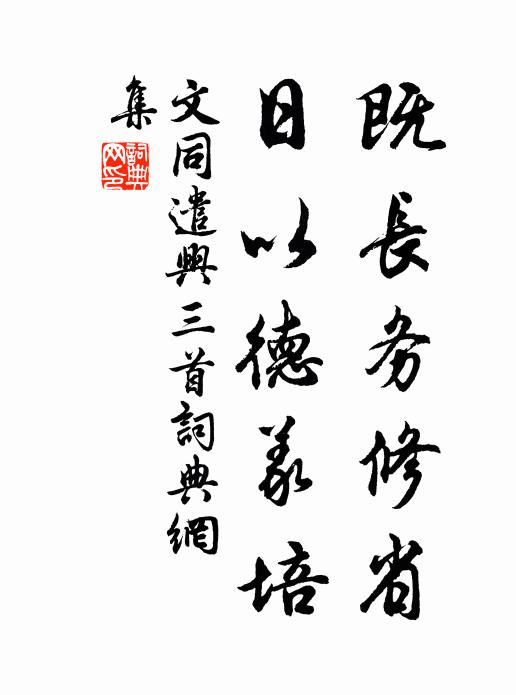 既長务修省
日以德義培
文同遣興三首詞典網
集
詞典
网印